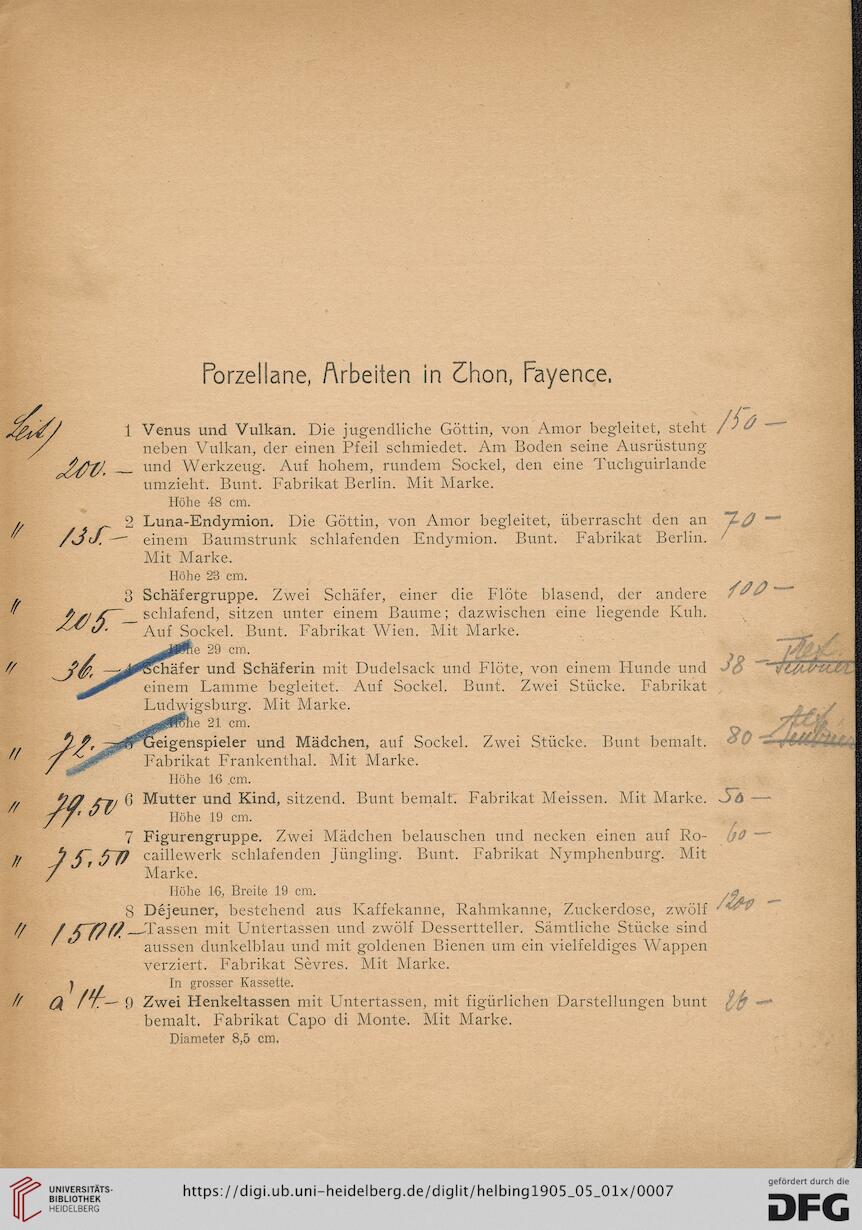 Porzellane, Arbeiten in Thon, Fayence.
Leit)
1 Venus und Vulkan. Die jugendliche Göttin, von Amor begleitet, steht 150 —
neben Vulkan, der einen Pfeil schmiedet. Am Boden seine Ausrüstung
200. — und Werkzeug. Auf hohem, rundem Sockel, den eine Tuchguirlande
umzieht. Bunt. Fabrikat Berlin. Mit Marke.
Höhe 48 cm.
2 Luna-Endymion. Die Göttin, von Amor begleitet, überrascht den an 70 —
" 135. — einem Baumstrunk schlafenden Endymion. Bunt. Fabrikat Berlin.
Mit Marke.
Höhe 23 cm.
3 Schäfergruppe. Zwei Schäfer, einer die Flöte blasend, der andere 100 —
" 205. — schlafend, sitzen unter einem Baume; dazwischen eine liegende Kuh.
Auf Sockel. Bunt. Fabrikat Wien. Mit Marke.
Höhe 29 cm.
" 36. — 4 Schäfer und Schäferin mit Dudelsack und Flöte, von einem Hunde und 38 —
einem Lamme begleitet. Auf Sockel. Bunt. Zwei Stücke. Fabrikat
Ludwigsburg. Mit Marke.
Höhe 21 cm.
" 72. — 5 Geigenspieler und Mädchen, auf Sockel. Zwei Stücke. Bunt bemalt. 80 —
Fabrikat Frankenthal. Mit Marke.
Höhe 16 cm.
" 79.50 6 Mutter und Kind, sitzend. Bunt bemalt. Fabrikat Meissen. Mit Marke. 50 —
Höhe 19 cm.
7 Figurengruppe. Zwei Mädchen belauschen und necken einen auf Ro- 60 —
" 75.50 caillewerk schlafenden Jüngling. Bunt. Fabrikat Nymphenburg. Mit
Marke.
Höhe 16, Breite 19 cm.
8 Déjeuner, bestehend aus Kaffekanne, Rahmkanne, Zuckerdose, zwölf 1200 —
" 1500. — Tassen mit Untertassen und zwölf Dessertteller. Sämtliche Stücke sind
aussen dunkelblau und mit goldenen Bienen um ein vielfeldiges Wappen
verziert. Fabrikat Sèvres. Mit Marke.
In grosser Kassette.
" à 14. — 9 Zwei Henkeltassen mit Untertassen, mit figürlichen Darstellungen bunt 26 —
bemalt. Fabrikat Capo di Monte. Mit Marke.
Diameter 8,5 cm.
UNIVERSITÄTS-
BIBLIOTHEK
HEIDELBERG
https://digi.ub.uni-heidelberg.de/diglit/helbing1905_05_01x/0007
gefördert durch die
DFG